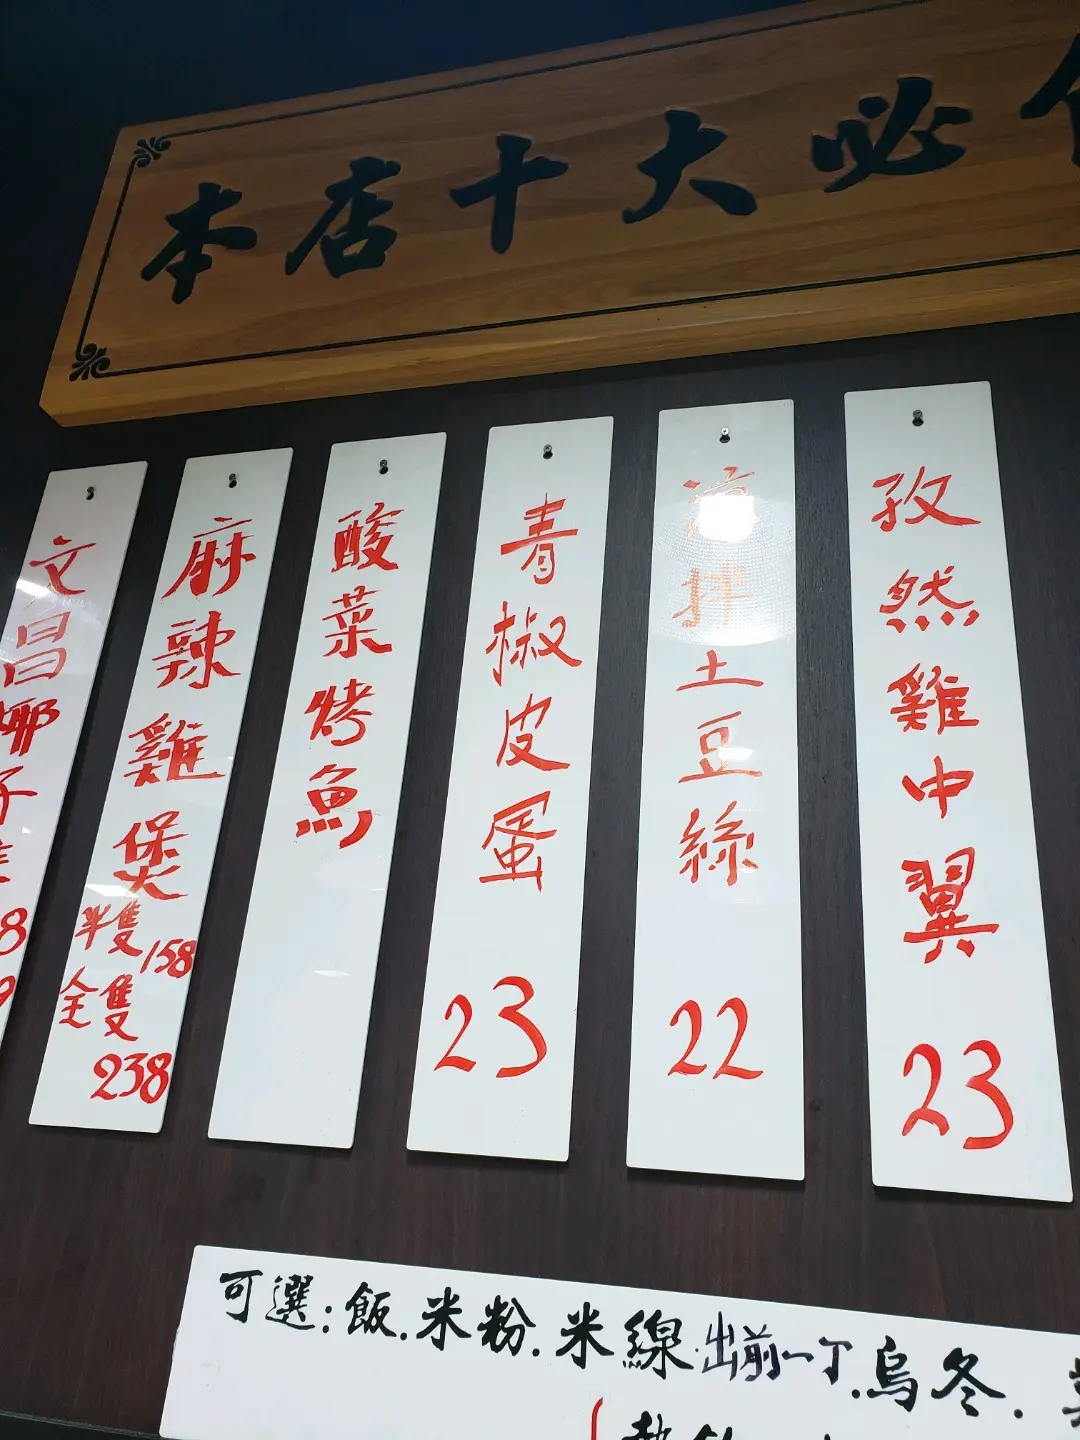 本店十大必
文昌椰子
麻辣雞煲
半隻158
全隻
238
酸菜烤魚
青椒皮蛋
23
涼拌土豆絲
22
孜然雞中翼
23
可選:飯.米粉.米線.出前一丁.烏冬.